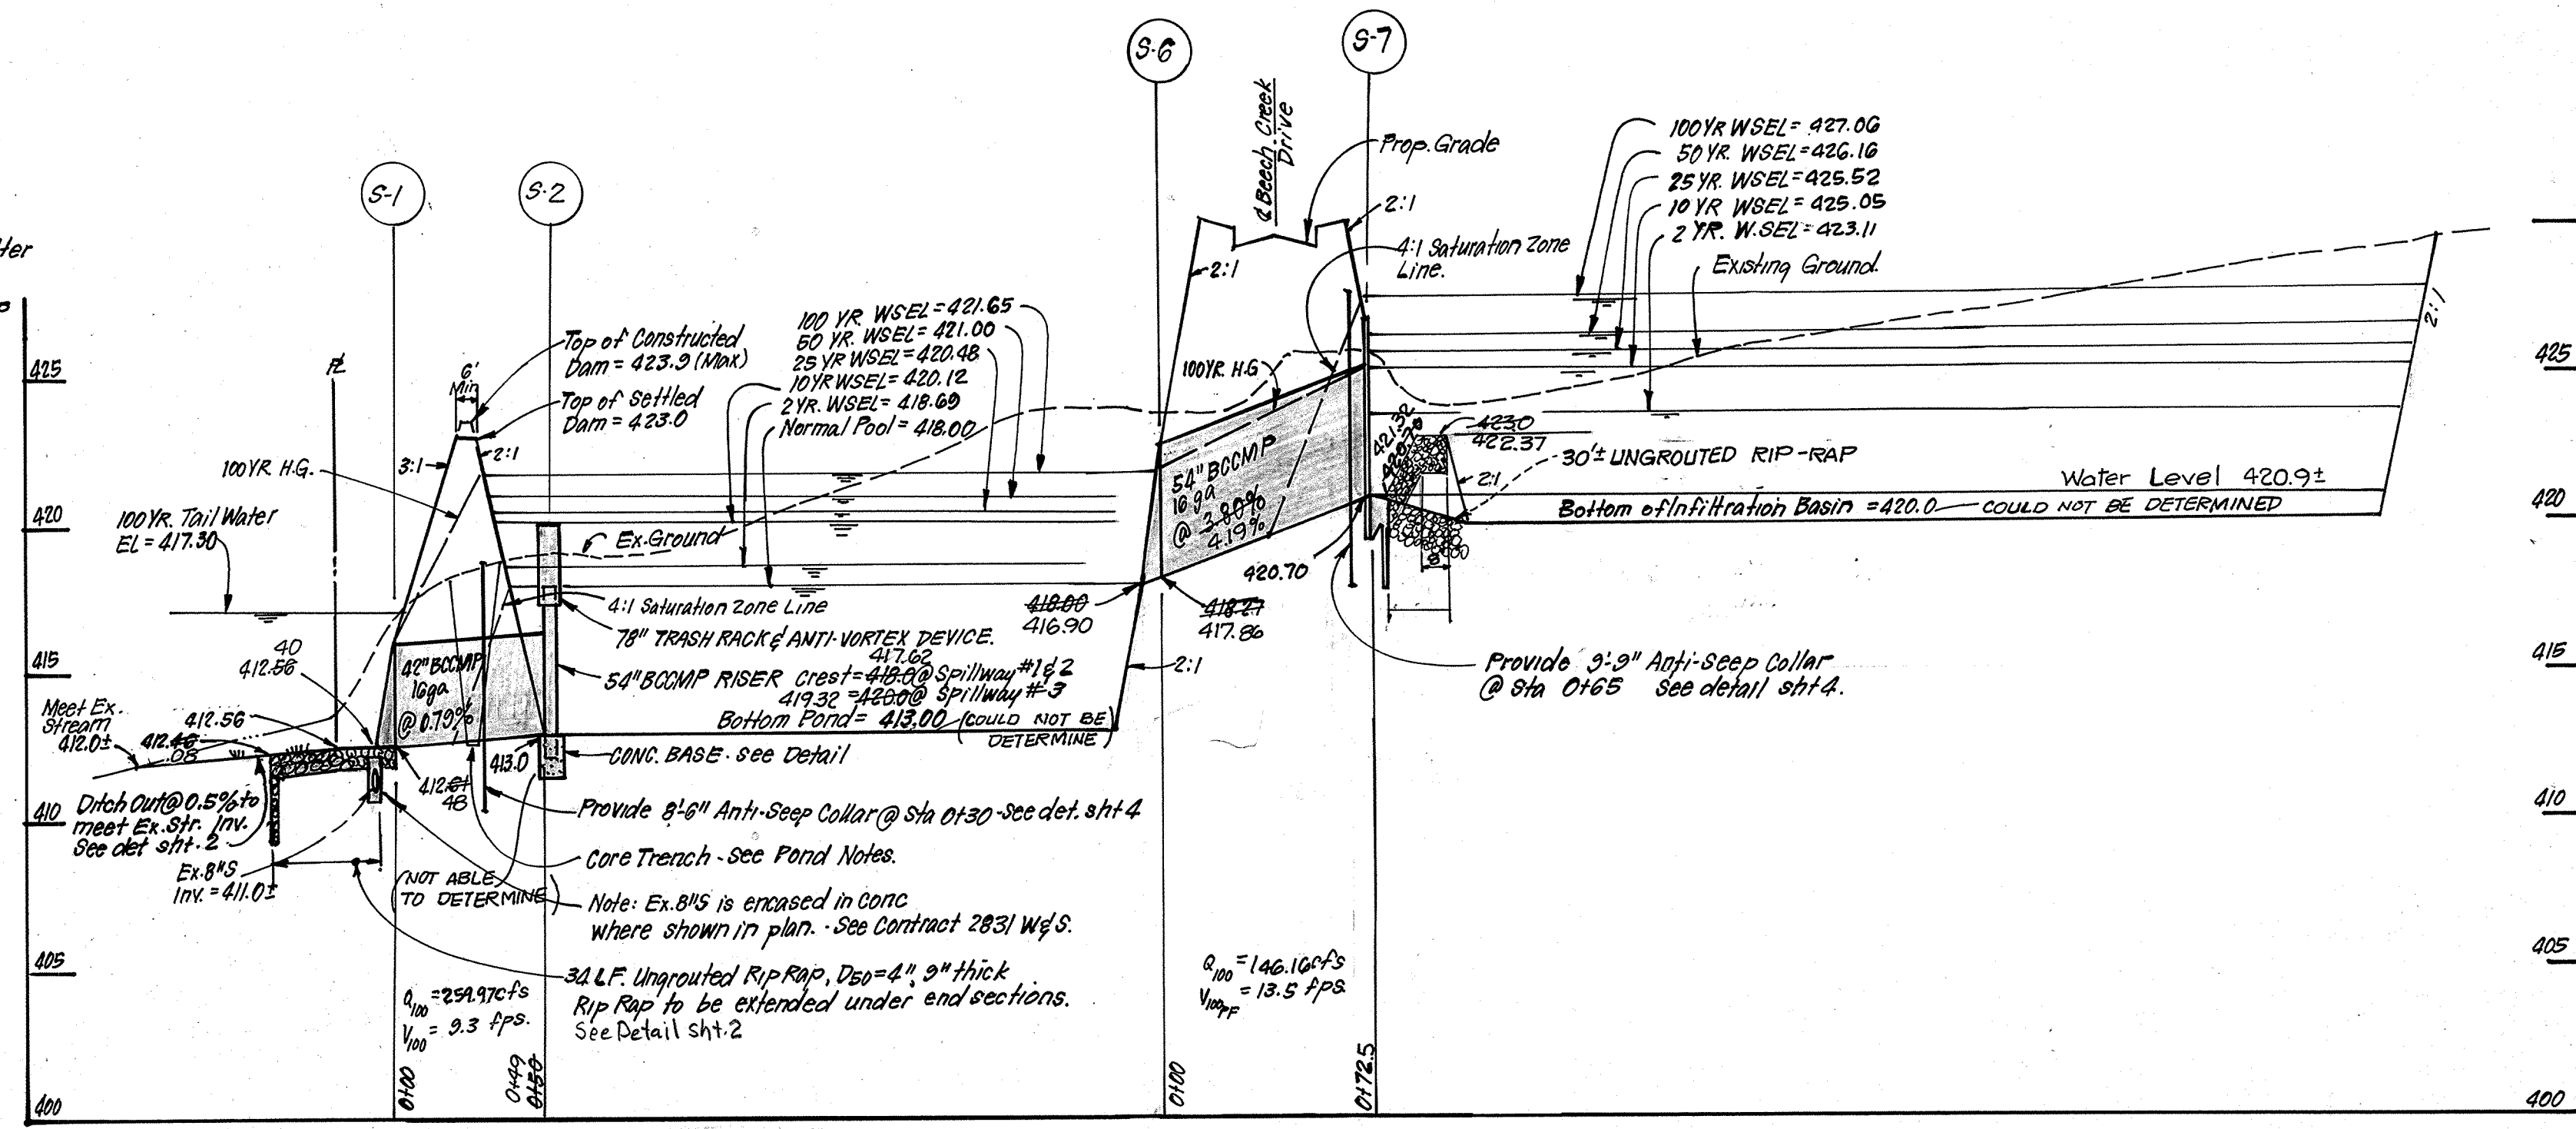 S-6
S-7
S-1
S-2
₵ Beech Creek
Drive
Prop. Grade
2:1
4:1 Saturation Zone
Line.
2:1
100 YR WSEL = 427.06
50 YR. WSEL = 426.16
25 YR. WSEL = 425.52
10 YR WSEL = 425.05
2 YR. W.SEL = 423.11
Existing Ground.
2:1
425
420
415
410
405
400
Top of Constructed
Dam = 423.9 (Max)
Top of Settled
Dam = 423.0
6'
Min
3:1
2:1
100 YR. H.G.
100 YR. Tail Water
EL = 417.30
100 YR. WSEL = 421.65
50 YR. WSEL = 421.00
25 YR WSEL = 420.48
10 YR WSEL = 420.12
2 YR. WSEL = 418.69
Normal Pool = 418.00
Ex. Ground
4:1 Saturation Zone Line
78" TRASH RACK & ANTI-VORTEX DEVICE.
417.62
54" BCCMP RISER Crest = 418.0 @ Spillway #1 & 2
419.32 = 420.0 @ Spillway # 3
Bottom Pond = 413.00 (COULD NOT BE
DETERMINE)
CONC. BASE - See Detail
42" BCCMP
16ga
@ 0.79%
40
412.56
Meet Ex.
Stream
412.0±
412.56
412.46
.08
412.61
48
413.0
Ditch Out @ 0.5% to
meet Ex. Str. Inv.
See det sht. 2
Ex. 8"S
Inv. = 411.0±
(NOT ABLE
TO DETERMINE)
Provide 8'-6" Anti-Seep Collar @ Sta 0+30 - See det. sht 4
Core Trench - See Pond Notes.
Note: Ex. 8"S is encased in conc
where shown in plan. - See Contract 2831 W&S.
34 LF. Ungrouted Rip Rap, D50 = 4", 9" thick
Rip Rap to be extended under end sections.
See Detail sht. 2
Q100 = 259.97 cfs
V100 = 9.3 fps.
0+00
0+49
0+50
100 YR. H.G
54" BCCMP
16 ga
@ 3.80%
4.19%
418.00
416.90
418.27
417.86
2:1
421.32
420.70
420.70
423.0
422.37
30'± UNGROUTED RIP-RAP
2:1
8'
Water Level 420.9±
Bottom of Infiltration Basin = 420.0 COULD NOT BE DETERMINED
Provide 9'-9" Anti-Seep Collar
@ Sta 0+65 See detail sht 4.
Q100 = 146.16 cfs
V100PF = 13.5 fps
0+00
0+72.5
425
420
415
410
405
400